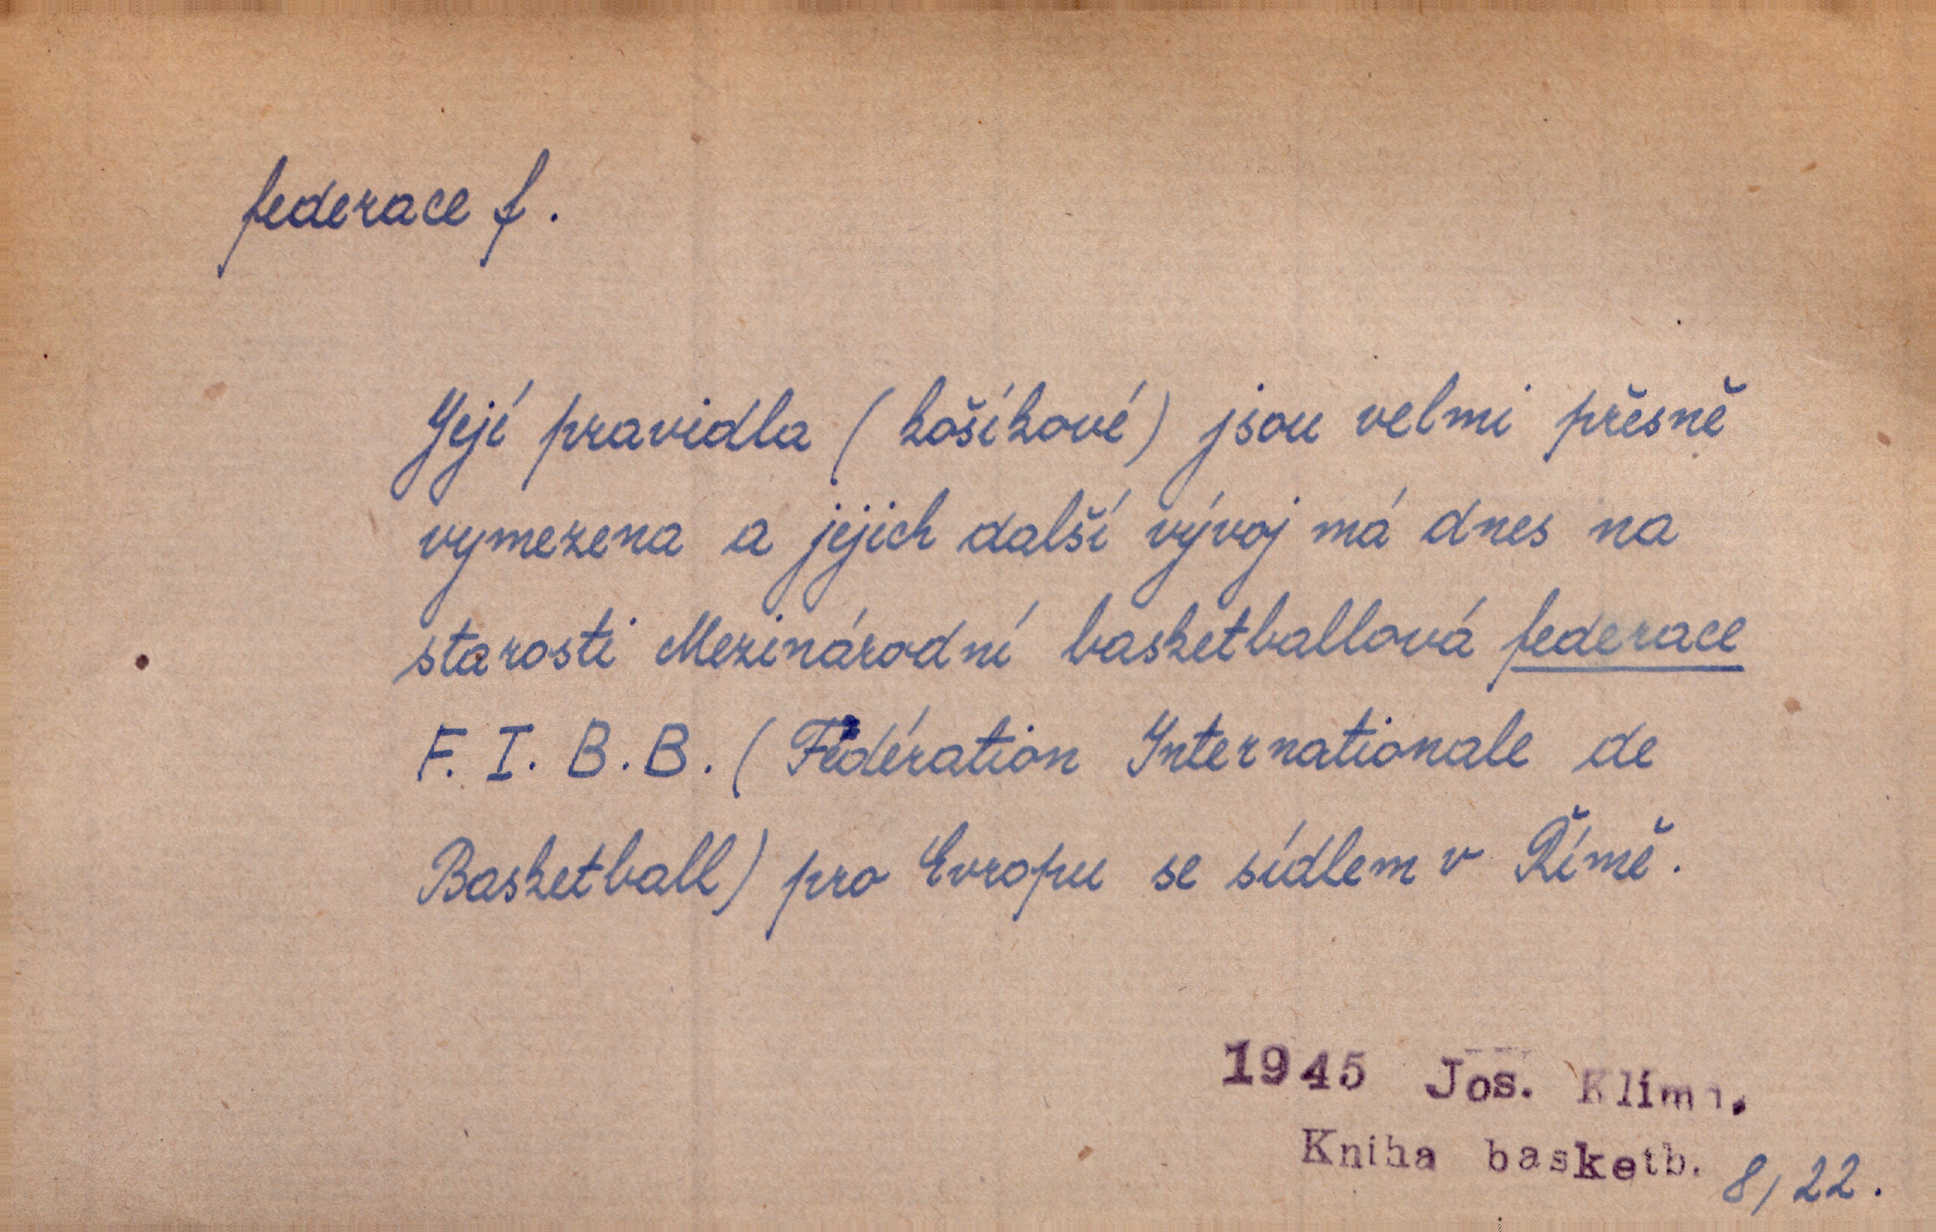 federace f.
Její pravidla (košíkové) jsou velmi přesně
vymezena a jejich další vývoj má dnes na
starosti Mezinárodní basketballová federace
F. I. B. B. (Fédération Internationale de
Basketball) pro Evropu se sídlem v Římě.
1945 Jos. Klíma,
Kniha basketb. 8/22.